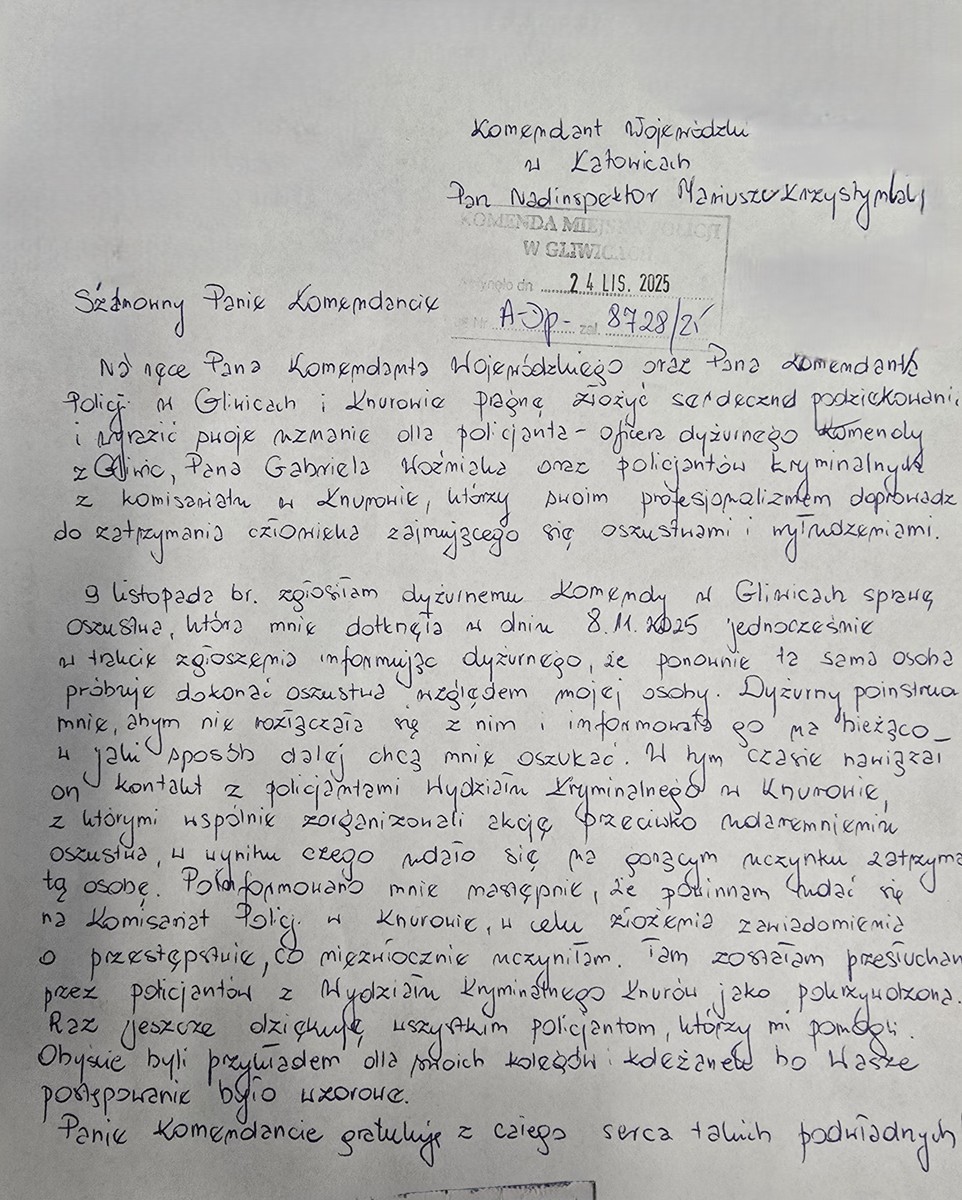 Komendant Wojewódzki
w Katowicach
Pan Nadinspektor Mariusz Krzystyniak
KOMENDA MIEJSKA POLICJI
W GLIWICACH
wpłynęło dn ...... 24 LIS. 2025
A-Op- zał. 8728/25
Szanowny Panie Komendancie
Na ręce Pana Komendanta Wojewódzkiego oraz Pana Komendanta
Policji w Gliwicach i Knurowie pragnę złożyć serdeczne podziękowani
i wyrazić swoje uznanie dla policjanta - oficera dyżurnego Komendy
z Gliwic, Pana Gabriela Woźniaka oraz policjantów kryminalnych
z komisariatu w Knurowie, którzy swoim profesjonalizmem doprowadz
do zatrzymania człowieka zajmującego się oszustwami i wyłudzeniami.
9 listopada br. zgłosiłam dyżurnemu Komendy w Gliwicach sprawę
oszustwa, która mnie dotknęła w dniu 8.11.2025 jednocześnie
w trakcie zgłoszenia informując dyżurnego, że ponownie ta sama osoba
próbuje dokonać oszustwa względem mojej osoby. Dyżurny poinstruo
mnie, abym nie rozłączała się z nim i informowała go na bieżąco_
w jaki sposób dalej chcą mnie oszukać. W tym czasie nawiązał
on kontakt z policjantami Wydziału Kryminalnego w Knurowie,
z którymi wspólnie zorganizowali akcję przeciwko udaremnieniu
oszustwa, w wyniku czego udało się na gorącym uczynku zatrzyma
tą osobę. Poinformowano mnie następnie, że powinnam udać się
na Komisariat Policji w Knurowie, w celu złożenia zawiadomienia
o przestępstwie, co niezwłocznie uczyniłam. Tam zostałam przesłuchan
przez policjantów z Wydziału Kryminalnego Knurów jako pokrzywdzona.
Raz jeszcze dziękuję wszystkim policjantom, którzy mi pomogli.
Obyście byli przykładem dla swoich kolegów i koleżanek bo Wasze
postępowanie było wzorowe.
Panie Komendancie gratuluję z całego serca takich podwładnych